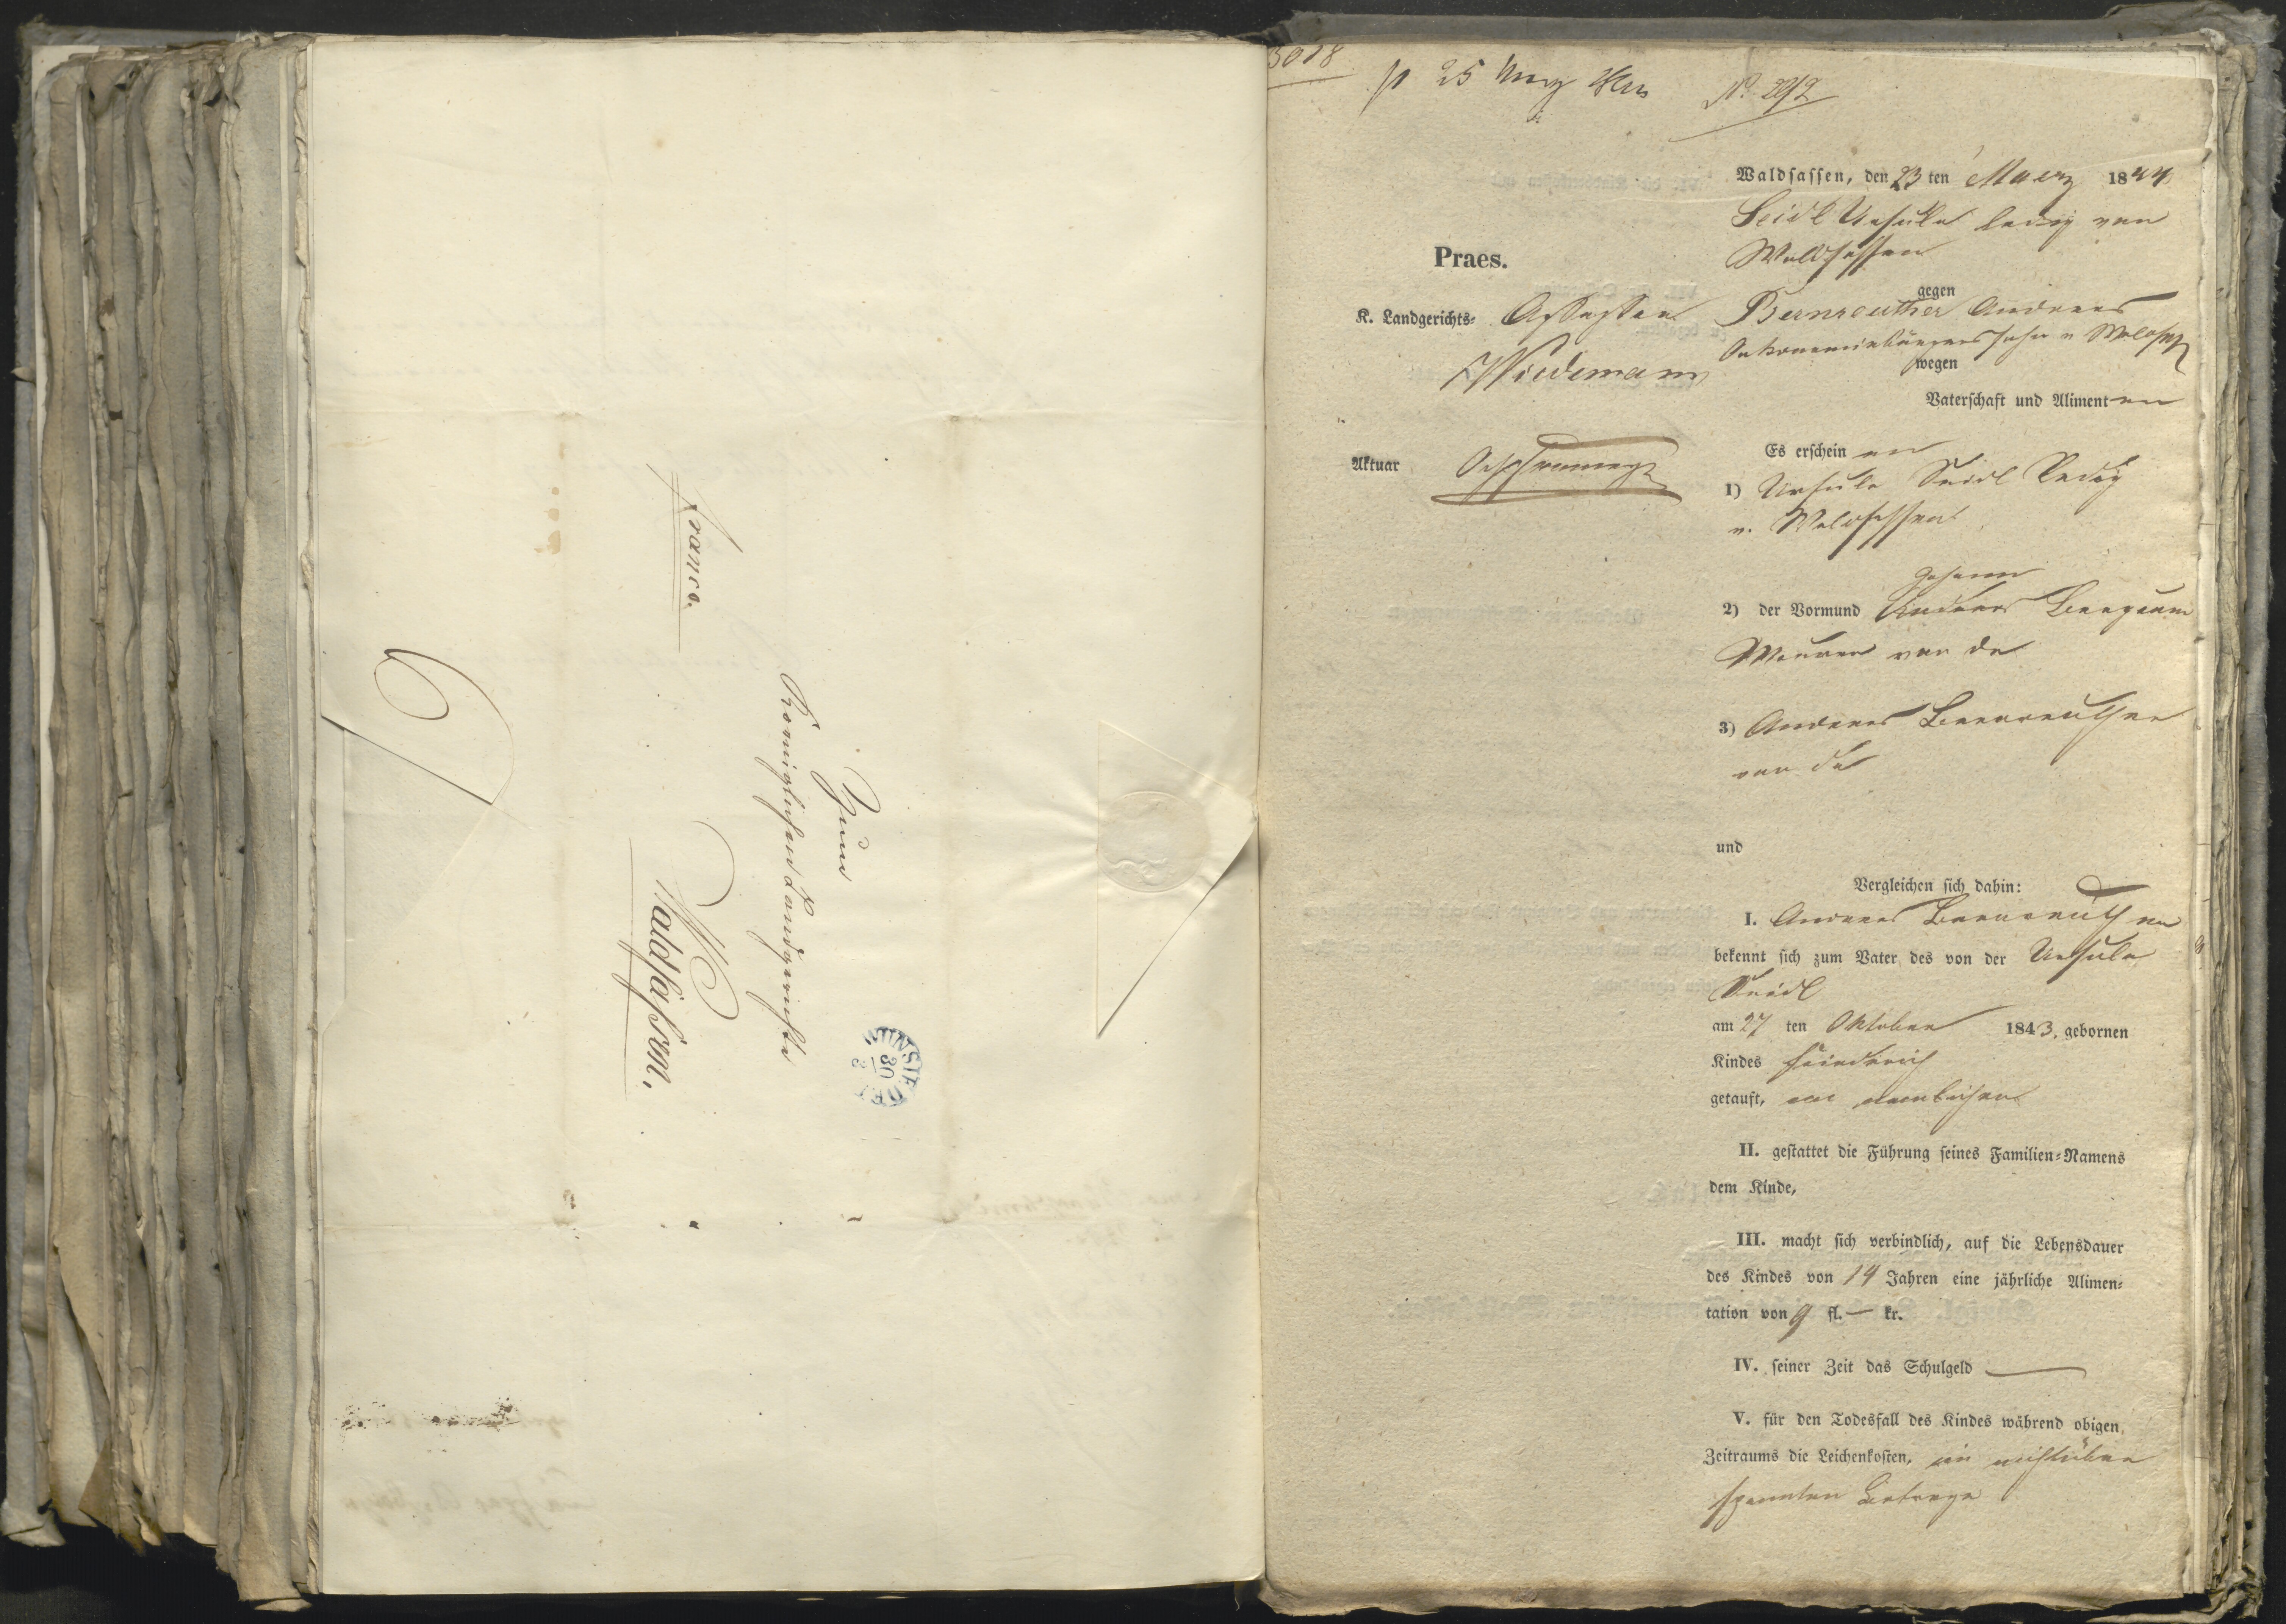 franco.
Zum
Koeniglichen Landgerichte
Waldsassen.
WUNSIEDEL
30
3018
25
Nº 292
Waldsassen, den 23 ten Maerz 1844
Seidl Ursula ledig von
Waldsassen
gegen
Praes.
K. Landgerichts- Assessor
Wiedemann
Bernreuther Andreas
Oekonomiebürgers Sohn v. Waldsassen
wegen
Vaterschaft und Alimenten
Aktuar
Es erscheinen
1) Ursula Seidl ledig
v. Waldsassen
Johann
2) der Vormund Andreas
Maurer von da
3) Andreas Bernreuther
von da
und
Vergleichen sich dahin:
I. Andreas Bernreuther
bekennt sich zum Vater des von der Ursula
Seidl
am 27 ten Oktober 1843, gebornen
Kindes Friedrich
getauft,
II. gestattet die Führung seines Familien-Namens
dem Kinde,
III. macht sich verbindlich, auf die Lebensdauer
des Kindes von 14 Jahren eine jährliche Alimen-
tation von 9 fl. — kr.
IV. seiner Zeit das Schulgeld —
V. für den Todesfall des Kindes während obigen
Zeitraums die Leichenkosten,